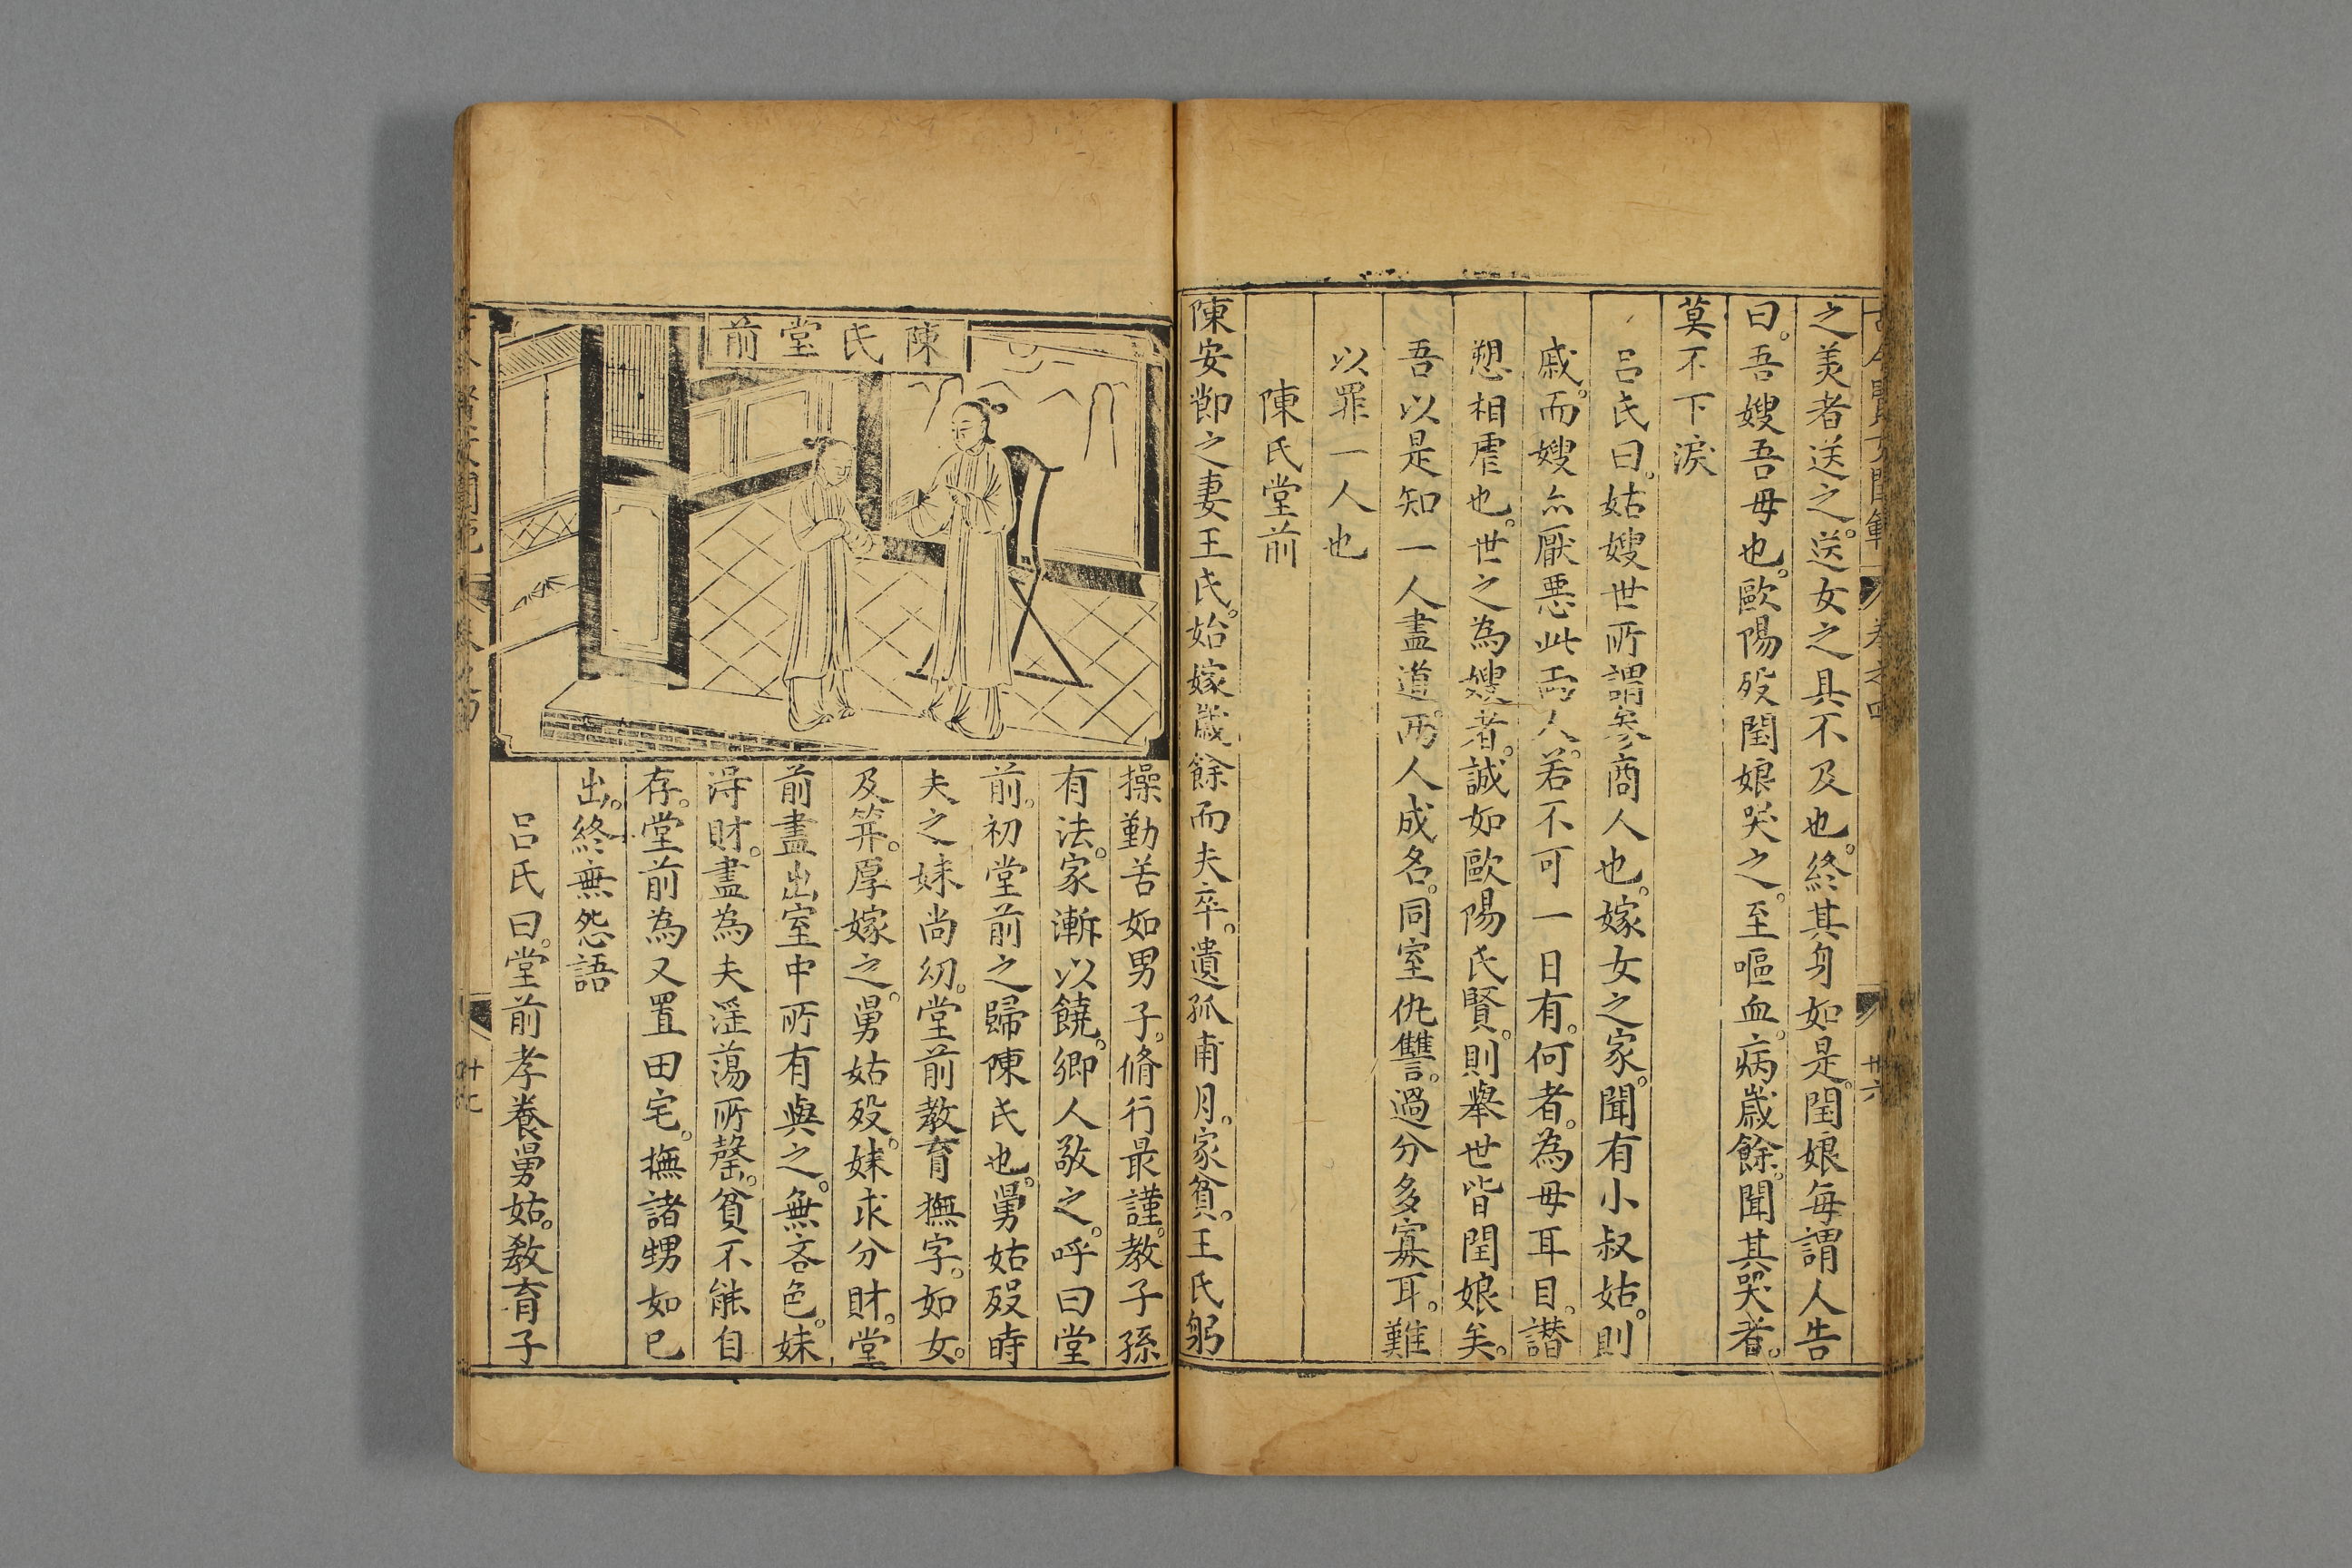 之美者送之。送女之具不及也。終其身如是。閏娘每謂人告
曰。吾嫂吾母也。歐陽歿閏娘哭之。至嘔血。病歲餘。聞其哭者。
莫不下淚
呂氏曰。姑嫂世所謂參商人也。嫁女之家。聞有小叔姑。則
戚。而嫂亦厭惡此兩人。若不可一日有。何者。為母耳目。譖
愬相虐也。世之為嫂者。誠如歐陽氏賢。則舉世皆閏娘矣。
吾以是知一人盡道。兩人成名。同室仇讐。過分多寡耳。難
以罪一人也
陳氏堂前
陳安節之妻王氏。始嫁歲餘而夫卒。遺孤甫月。家貧。王氏躬
陳氏堂前
操勤苦如男子。脩行最謹。教子孫
有法。家漸以饒。鄉人敬之。呼曰堂
前。初堂前之歸陳氏也。舅姑歿時
夫之妹尚幼。堂前教育撫字。如女。
及笄。厚嫁之。舅姑歿。妹求分財。堂
前盡出室中所有與之。無吝色。妹
得財。盡為夫淫蕩所罄。貧不能自
存。堂前為又置田宅。撫諸甥如己
出。終無怨語
呂氏曰。堂前孝養舅姑。教育子
卷之四
卅六